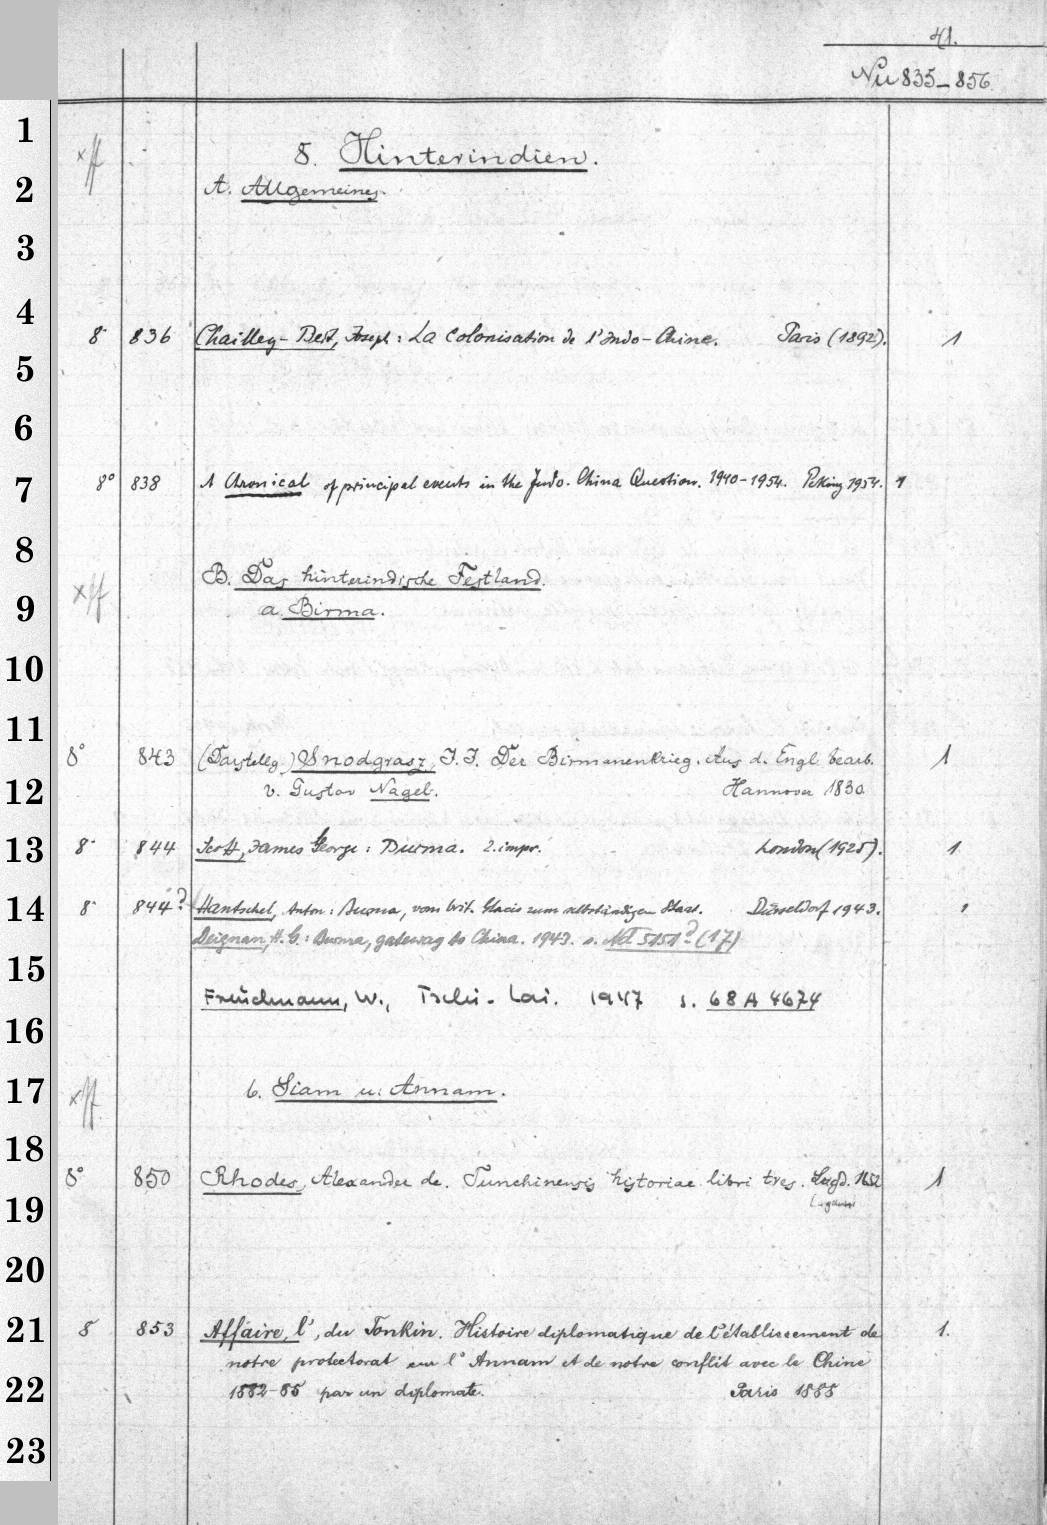 41.
Nu 835-856
1
8. Hinterindien.
2
A. Allgemeines.
3
4
8° 836 Chailley-Bert, Joseph: La Colonisation de l'Indo-Chine. Paris (1892). 1
5
6
7
8° 838 A Chronical of principal events in the Indo-China Question. 1940-1954. Peking 1954. 1
8
B. Das hinterindische Festland.
9
a. Birma.
10
11
8° 843 (Darstellg.) Snodgrasz, J.J. Der Birmanenkrieg. Aus d. Engl bearb.
12
v. Gustav Nagel. Hannover 1830 1
13
8° 844 Scott, James George: Burma. 2. impr. London (1925). 1
14
8° 844? Hantschel, Anton: Burma, vom brit. Glacis zum selbständigen Staat. Düsseldorf 1943. 1
Deignan, H. G.: Burma, gateway to China. 1943. s. (17)
15
W., Tschi-Lai. 1947 s. 68 A 4674
16
17
b. Siam u. Annam.
18
8° 850 Rhodes, Alexander de. Tunchinensis historiae libri tres. Lugd. 1652 1
19
20
21
8° 853 Affaire, l', du Tonkin. Histoire diplomatique de l'établissement de 1.
notre protectorat sur l'Annam et de notre conflit avec la Chine
22
1882-85 par un diplomate. Paris 1885
23